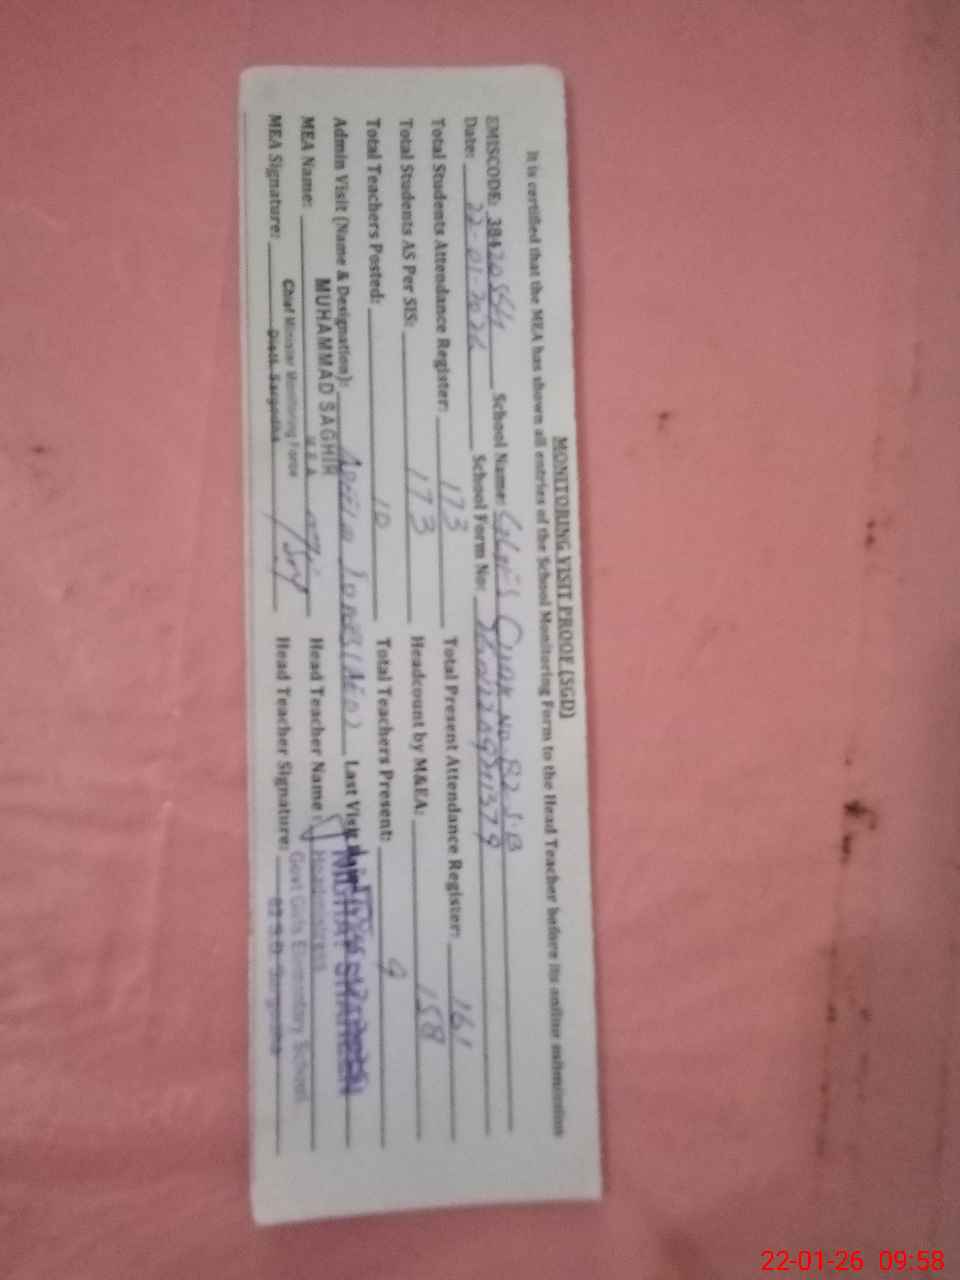 MONITORING VISIT PROOF (SGD)
It is certified that the MEA has shown all entries of the School Monitoring Form to the Head Teacher before its online submission
EMISCODE: 384 School Name: No. 82 S.B
Date: 22-01-2026 School Form No:
Total Students Attendance Register: 173 Total Present Attendance Register: 161
Total Students AS Per SIS: 173 Headcount by M&EA: 158
Total Teachers Posted: 10 Total Teachers Present: 9
Admin Visit (Name & Designation): Last Visit
NIGHAT SHAHEEN
MEA Name: MUHAMMAD SAGHIR Head Teacher Name:
M.E.A
Headmistress
MEA Signature: Chief Minister Monitoring Force Head Teacher Signature: Govt Girls Elementary School
Distt. Sargodha 82 S.B. Sargodha
22-01-26 09:58